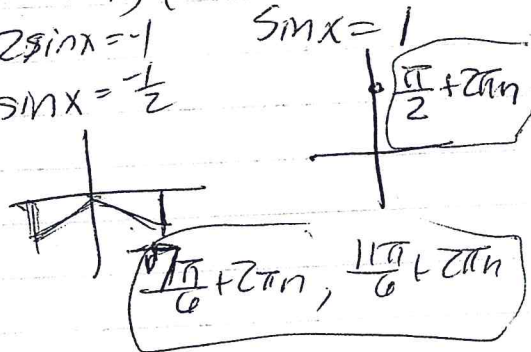 2sinx=-1
sinx=-1/2
sinx=1
π/2+2πn
7π/6+2πn, 11π/6+2πn